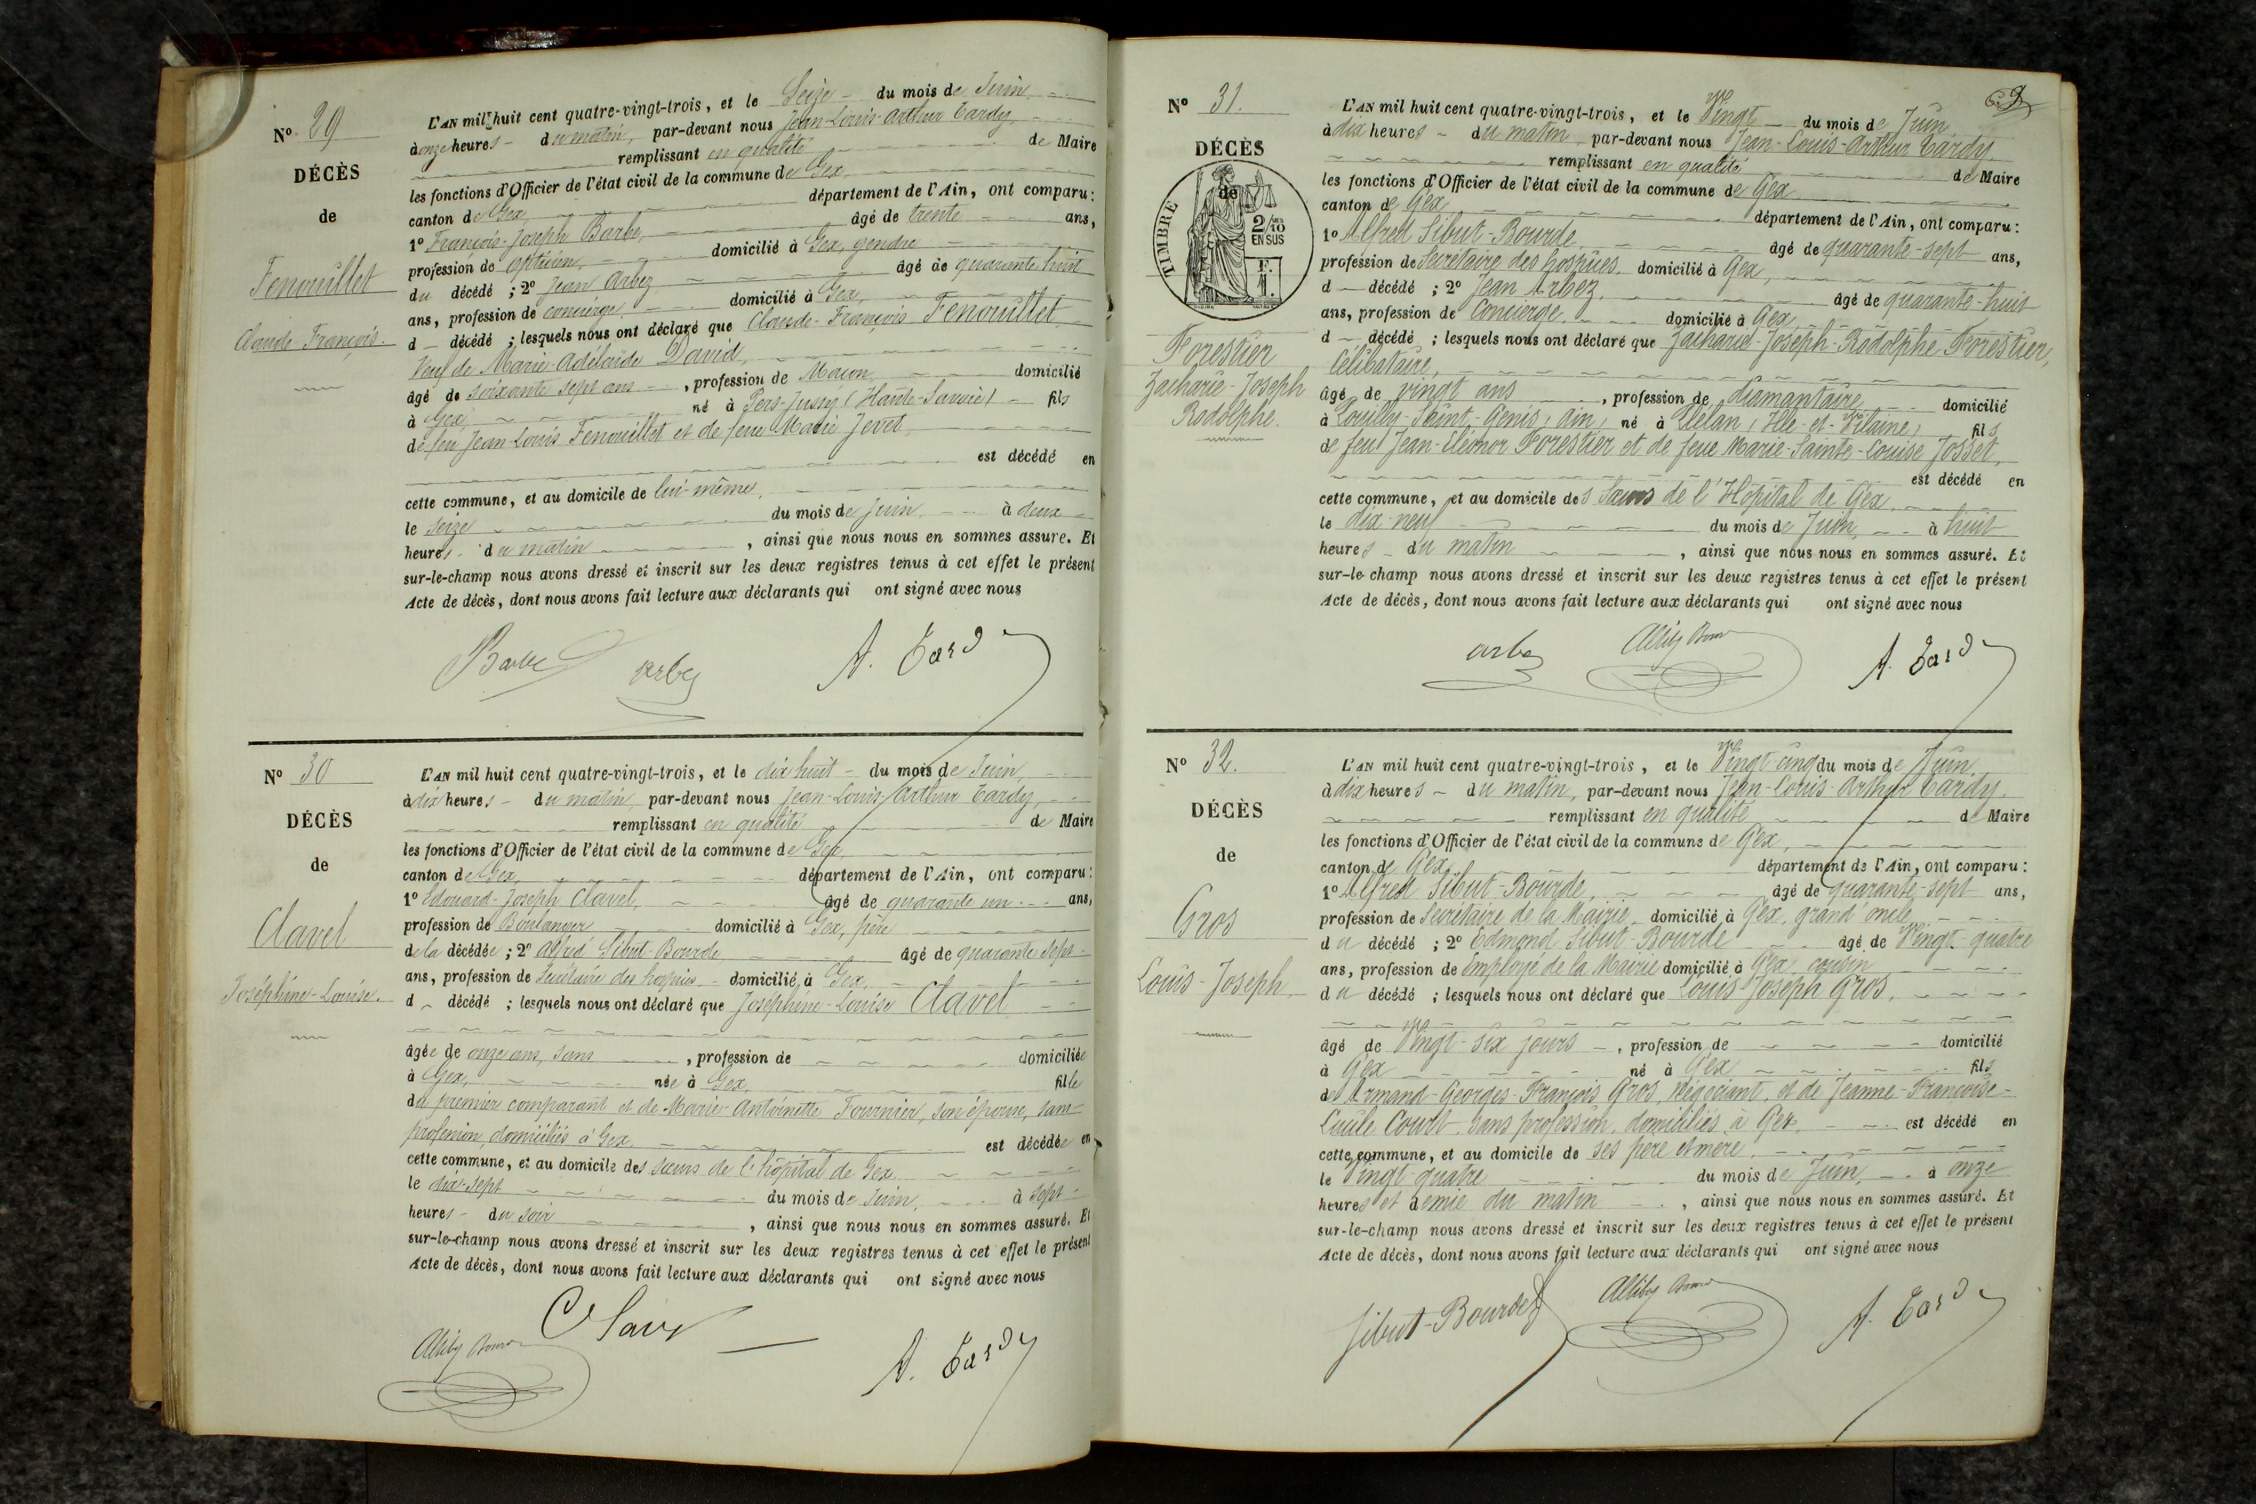 N° 29
DÉCÈS
de
Fenouillet
Claude-François.
L'AN mil huit cent quatre-vingt-trois, et le Seize du mois de Juin
à onze heures du matin, par-devant nous Jean-Louis-Arthur Tardy,
remplissant en qualité de Maire
les fonctions d'Officier de l'état civil de la commune de Gex
canton de Gex département de l'Ain, ont comparu :
1° François-Joseph Barbe, âgé de trente ans,
profession de opticien, domicilié à Gex, gendre
du décédé ; 2° Jean Arbez âgé de quarante-huit
ans, profession de concierge, domicilié à Gex,
d décédé ; lesquels nous ont déclaré que Claude-François Fenouillet
Veuf de Marie-Adélaïde David,
âgé de soixante sept ans, profession de Maçon domicilié
à Gex, né à Pers-Jussy (Haute-Savoie) fils
de feu Jean-Louis Fenouillet et de feue Marie Jevet,
est décédé en
cette commune, et au domicile de lui-même,
le seize du mois de Juin à deux
heures du matin, ainsi que nous nous en sommes assuré. Et
sur-le-champ nous avons dressé et inscrit sur les deux registres tenus à cet effet le présent
Acte de décès, dont nous avons fait lecture aux déclarants qui ont signé avec nous
Barbe arbez A. Tardy
N° 30
DÉCÈS
de
Clavel
Joséphine-Louise.
L'AN mil huit cent quatre-vingt-trois, et le dix huit du mois de Juin,
à dix heures du matin, par-devant nous Jean-Louis-Arthur Tardy,
remplissant en qualité de Maire
les fonctions d'Officier de l'état civil de la commune de Gex
canton de Gex, département de l'Ain, ont comparu :
1° Edouard-Joseph Clavel, âgé de quarante un ans,
profession de Boulanger domicilié à Gex, père
de la décédée ; 2° Alfred Sibut-Bourde âgé de quarante sept
ans, profession de Secrétaire des hospices domicilié à Gex,
d décédé ; lesquels nous ont déclaré que Joséphine-Louise Clavel
âgée de onze ans, sans, profession de domiciliée
à Gex, née à Gex, fille
du premier comparant et de Marie-Antoinette Fournier, son épouse, sans
profession, domiciliés à Gex est décédée en
cette commune, et au domicile des sœurs de l'hôpital de Gex
le dix-sept du mois de Juin, à sept
heures du soir, ainsi que nous nous en sommes assuré. Et
sur-le-champ nous avons dressé et inscrit sur les deux registres tenus à cet effet le présent
Acte de décès, dont nous avons fait lecture aux déclarants qui ont signé avec nous
Clavel
A. Tardy
N° 31.
DÉCÈS
de
TIMBRE
2/10
EN SUS
F.
Forestier
Zacharie-Joseph
Rodolphe.
L'AN mil huit cent quatre-vingt-trois, et le Vingt du mois de Juin
à dix heures du matin par-devant nous Jean-Louis-Arthur Tardy.
remplissant en qualité de Maire
les fonctions d'Officier de l'état civil de la commune de Gex
canton de Gex département de l'Ain, ont comparu :
1° Alfred Sibut-Bourde âgé de quarante-sept ans,
profession de Secrétaire des hospices domicilié à Gex,
d décédé ; 2° Jean Arbez. âgé de quarante-huit
ans, profession de Concierge. domicilié à Gex
d décédé ; lesquels nous ont déclaré que Zacharie-Joseph-Rodolphe Forestier,
Célibataire,
âgé de vingt ans, profession de diamantaire domicilié
à Pouilly-Saint-Genis, Ain, né à Plélan, Ille-et-Vilaine, fils
de feu Jean-Eléonor Forestier et de feue Marie-Sainte-Louise Josset,
est décédé en
cette commune, et au domicile des Sœurs de l'Hôpital de Gex
le dix-neuf du mois de Juin, à huit
heures du matin, ainsi que nous nous en sommes assuré. Et
sur-le-champ nous avons dressé et inscrit sur les deux registres tenus à cet effet le présent
Acte de décès, dont nous avons fait lecture aux déclarants qui ont signé avec nous
arbez A. Tardy
N° 32.
DÉCÈS
de
Gros
Louis-Joseph
L'AN mil huit cent quatre-vingt-trois, et le Vingt-cinq du mois de Juin.
à dix heures du matin, par-devant nous Jean-Louis-Arthur Tardy.
remplissant en qualité de Maire
les fonctions d'Officier de l'état civil de la commune de Gex,
canton de Gex département de l'Ain, ont comparu :
1° Alfred Sibut-Bourde, âgé de quarante-sept ans,
profession de Secrétaire de la Mairie domicilié à Gex, grand oncle
du décédé ; 2° Edmond Sibut-Bourde âgé de Vingt-quatre
ans, profession de Employé de la Mairie domicilié à Gex, cousin
du décédé ; lesquels nous ont déclaré que Louis Joseph Gros,
âgé de Vingt-six jours, profession de domicilié
à Gex né à Gex fils
de Armand-Georges-François Gros, Négociant, et de Jeanne-Françoise-
Lucile Court, sans profession, domiciliés à Gex, est décédé en
cette commune, et au domicile de ses père et mère.
le Vingt-quatre du mois de Juin, à onze
heures et demie du matin, ainsi que nous nous en sommes assuré. Et
sur-le-champ nous avons dressé et inscrit sur les deux registres tenus à cet effet le présent
Acte de décès, dont nous avons fait lecture aux déclarants qui ont signé avec nous
Sibut-Bourde A. Tardy